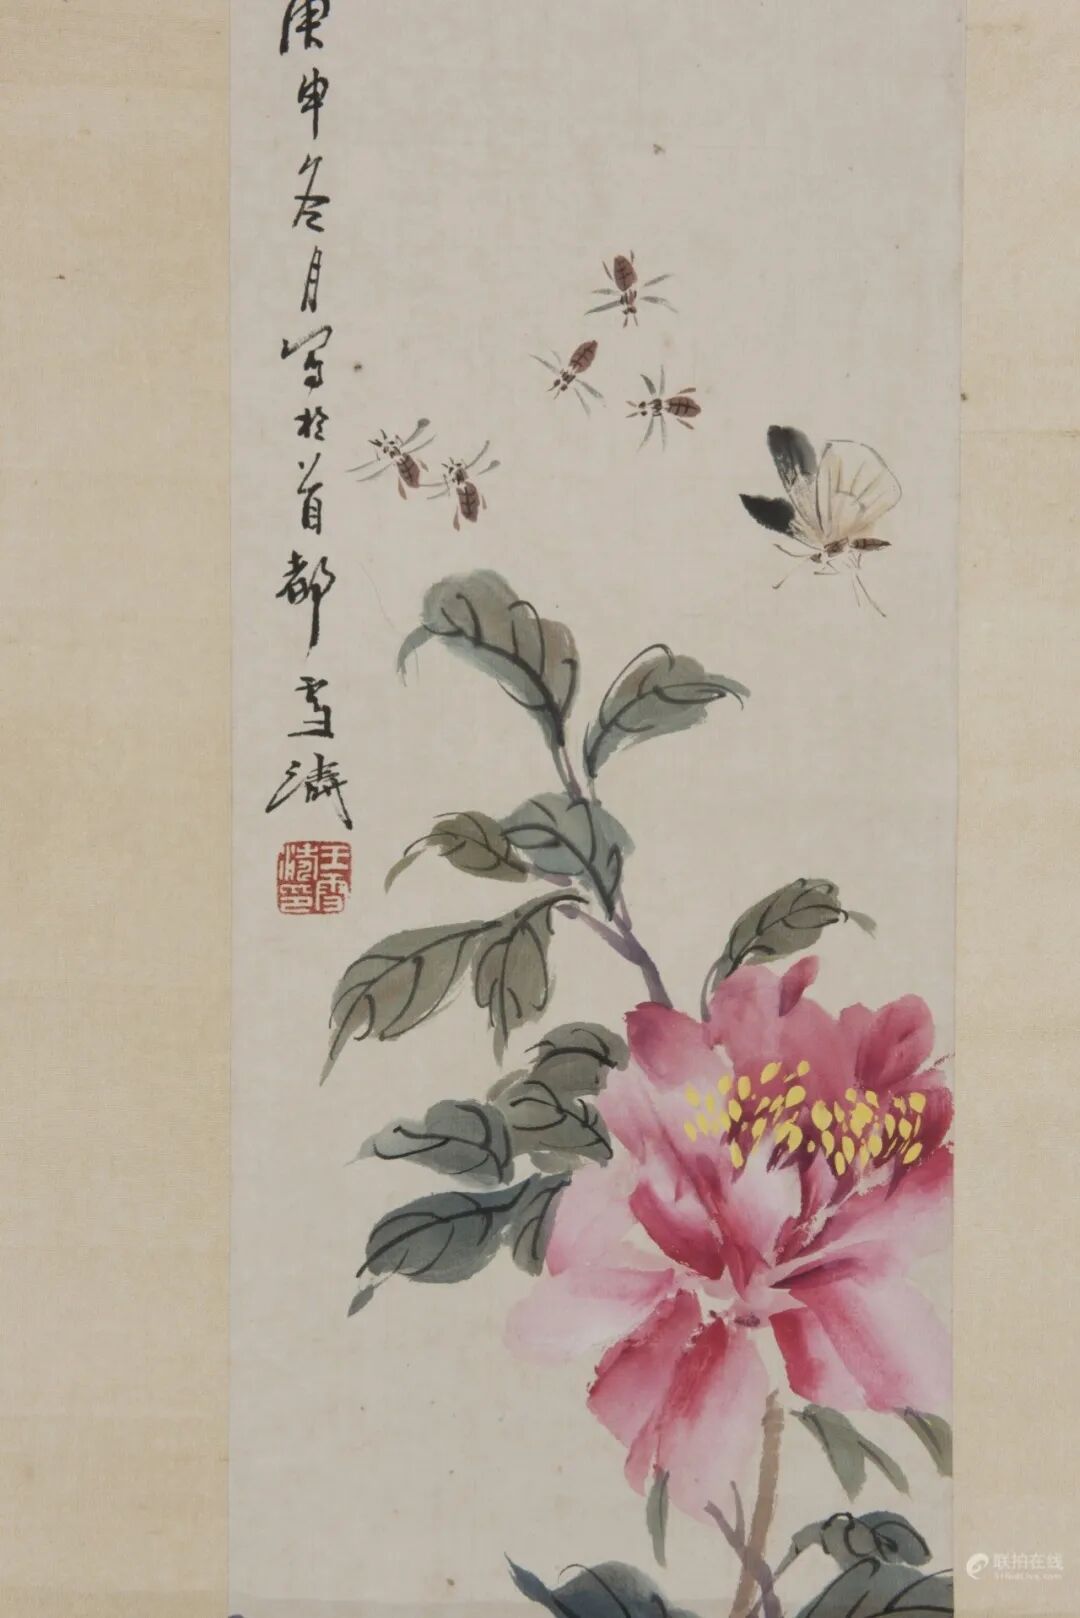 庚申冬月写於首都雪涛
王雪涛印
联拍在线